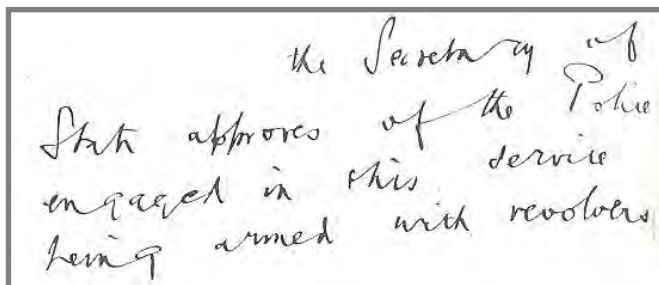 the Secretary of
State approves of the Police
engaged in this service
being armed with revolvers